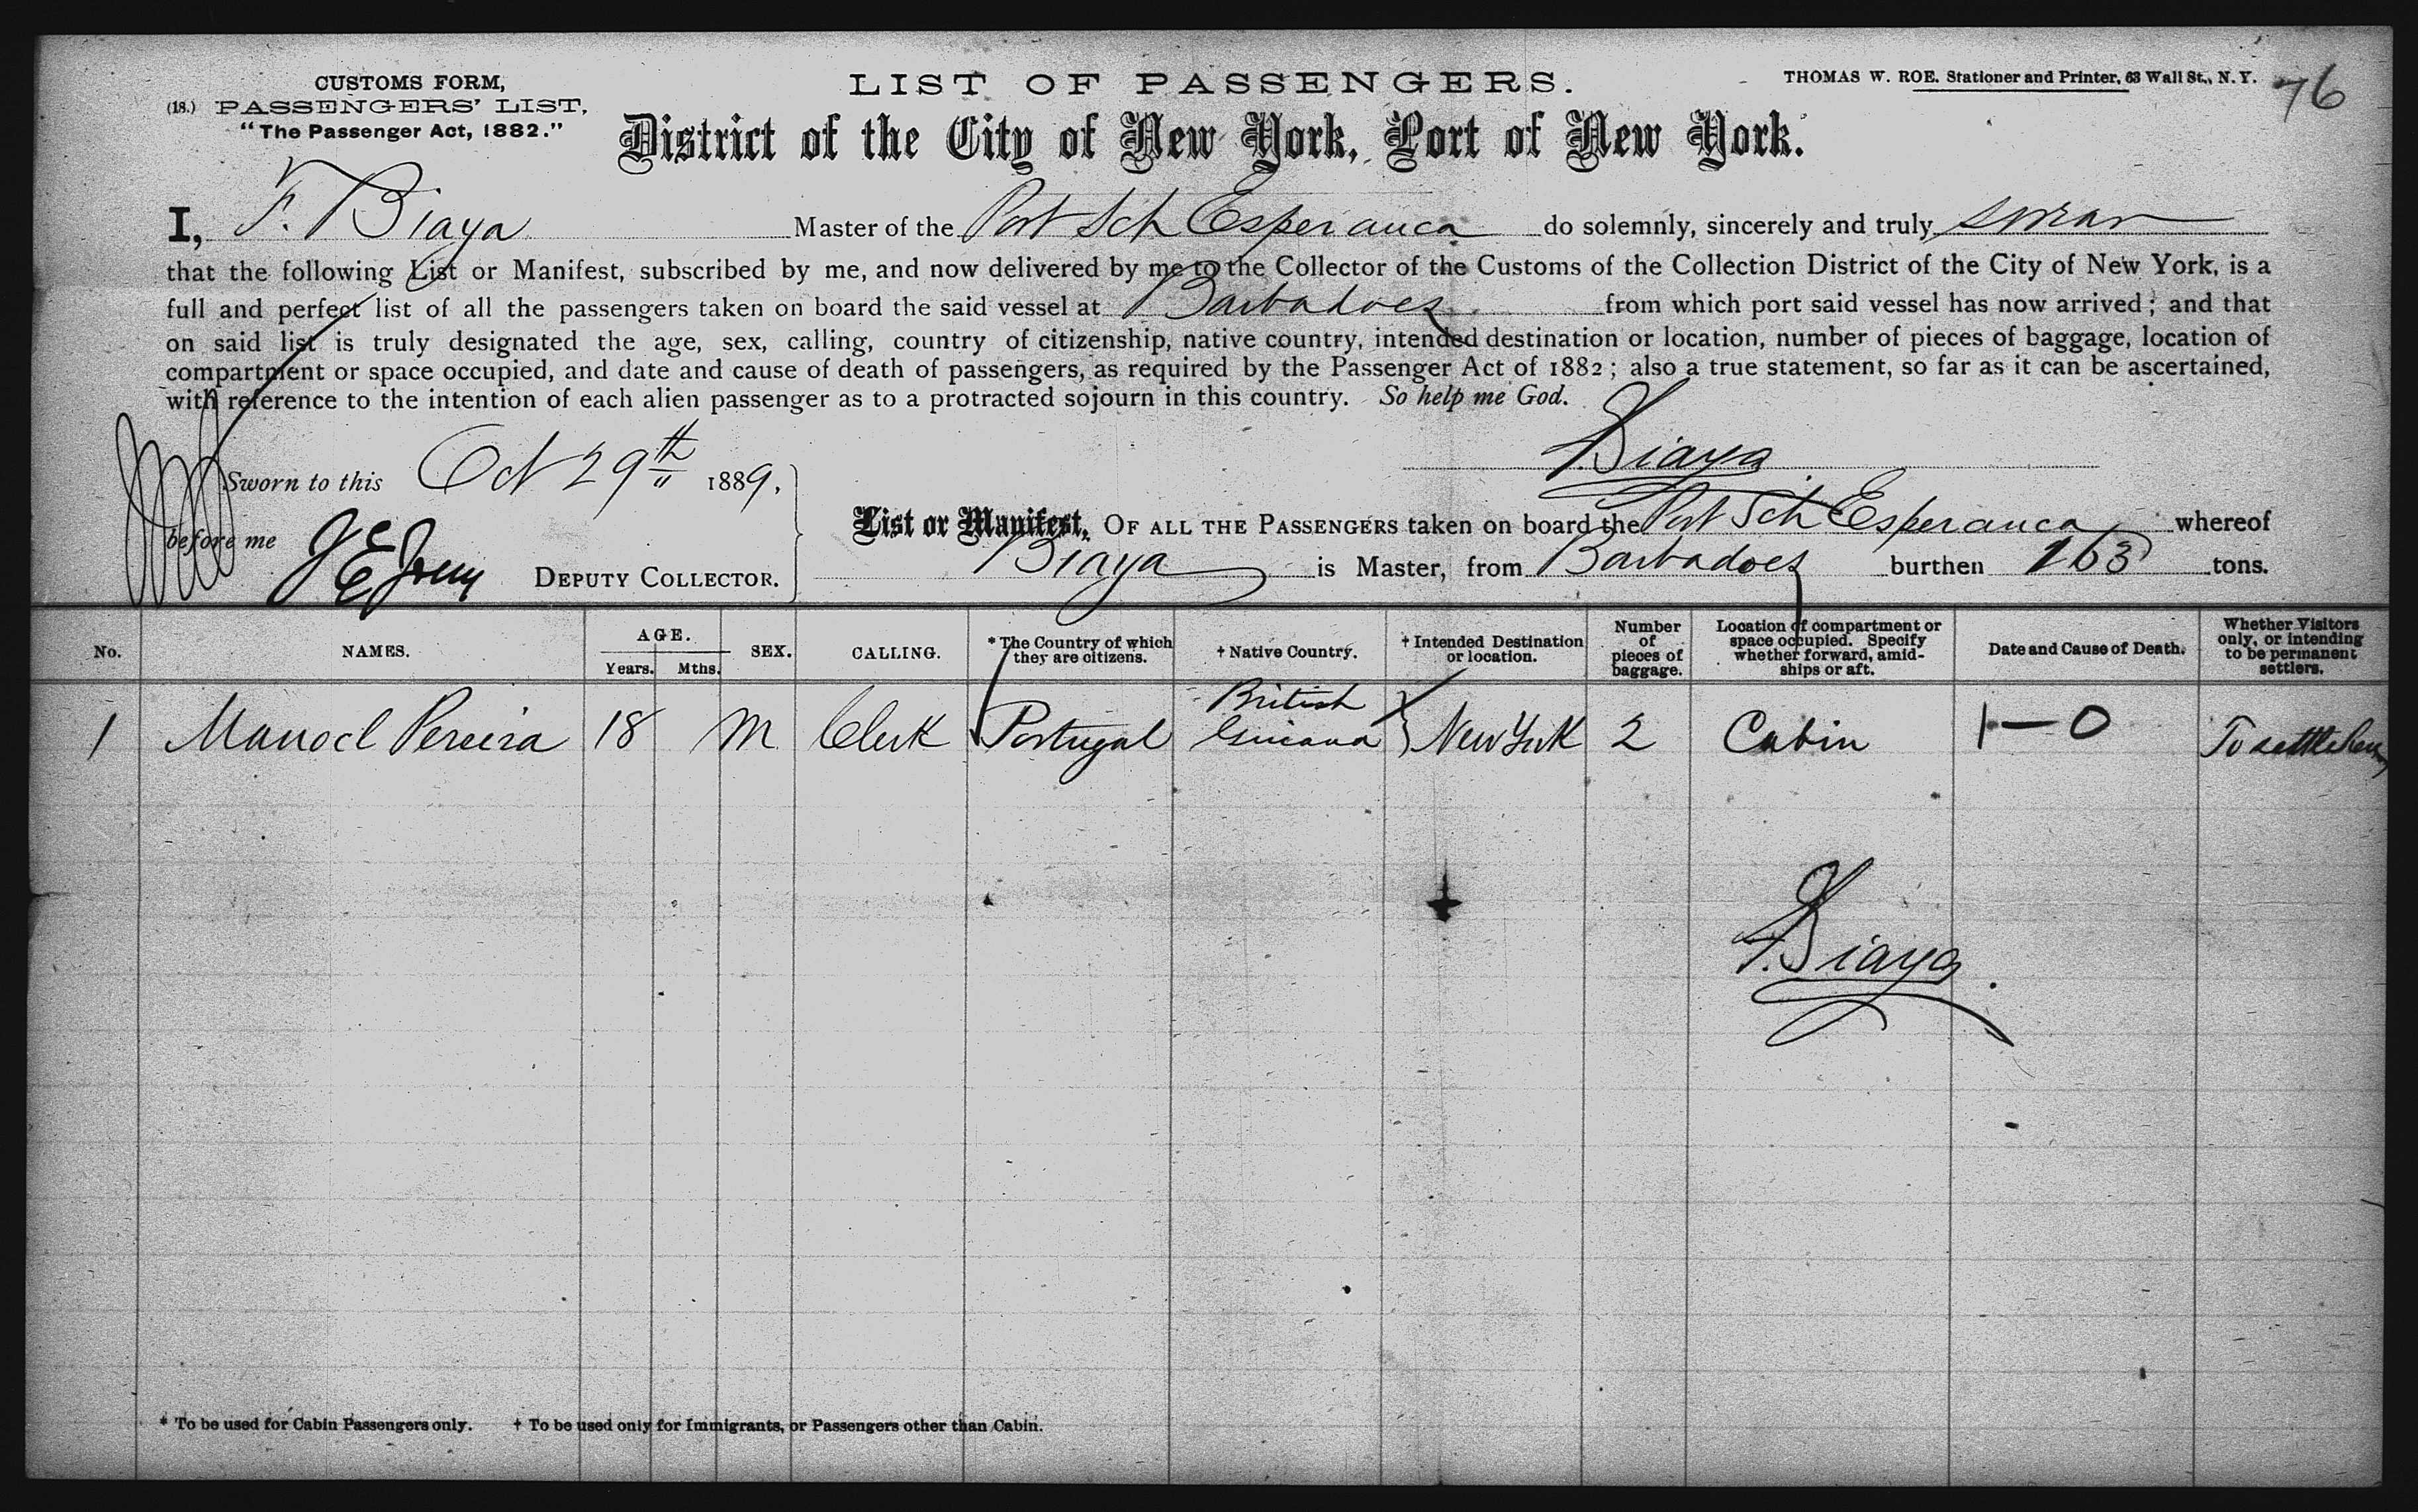 CUSTOMS FORM,
(18.) PASSENGERS' LIST,
"The Passenger Act, 1882."
LIST OF PASSENGERS.
THOMAS W. ROE. Stationer and Printer, 63 Wall St., N. Y.
76
District of the City of New York, Port of New York.
I, F. Biaya Master of the Port Sch Esperanca do solemnly, sincerely and truly swear
that the following List or Manifest, subscribed by me, and now delivered by me to the Collector of the Customs of the Collection District of the City of New York, is a
full and perfect list of all the passengers taken on board the said vessel at Barbadoes from which port said vessel has now arrived; and that
on said list is truly designated the age, sex, calling, country of citizenship, native country, intended destination or location, number of pieces of baggage, location of
compartment or space occupied, and date and cause of death of passengers, as required by the Passenger Act of 1882; also a true statement, so far as it can be ascertained,
with reference to the intention of each alien passenger as to a protracted sojourn in this country. So help me God.
F. Biaya
Sworn to this Oct 29th 1889,
before me DEPUTY COLLECTOR.
List or Manifest, OF ALL THE PASSENGERS taken on board the Port Sch Esperanca whereof
Biaya is Master, from Barbadoes burthen 163 tons.
No. NAMES. AGE. Years. Mths. SEX. CALLING. * The Country of which they are citizens. † Native Country. † Intended Destination or location. Number of pieces of baggage. Location of compartment or space occupied. Specify whether forward, amidships or aft. Date and Cause of Death. Whether Visitors only, or intending to be permanent settlers.
1 Manoel Pereira 18 M Clerk Portugal British Guiana New York 2 Cabin 1—0 To settle
F. Biaya
* To be used for Cabin Passengers only. † To be used only for Immigrants, or Passengers other than Cabin.